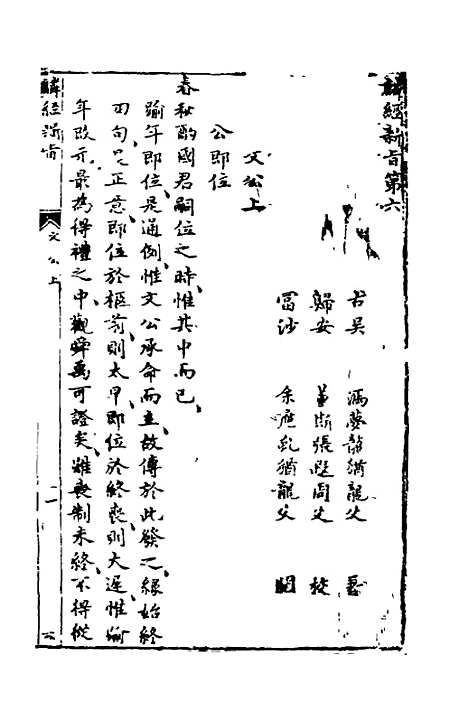 麟經新旨第六
古吳 馮夢龍猶龍父 著
歸安 董斯張遐周父 校
富沙 余應虬猶龍父 閱
文公上
公即位
春秋酌國君嗣位之時惟其中而已
踰年即位是通例惟文公承命而主故傳於此發之緣始終
四句是正意即位於柩前則太早即位於終喪則大遲惟踰
年改元最為得禮之中觀舜禹可證矣雖喪制未終不得從
麟經 文公上